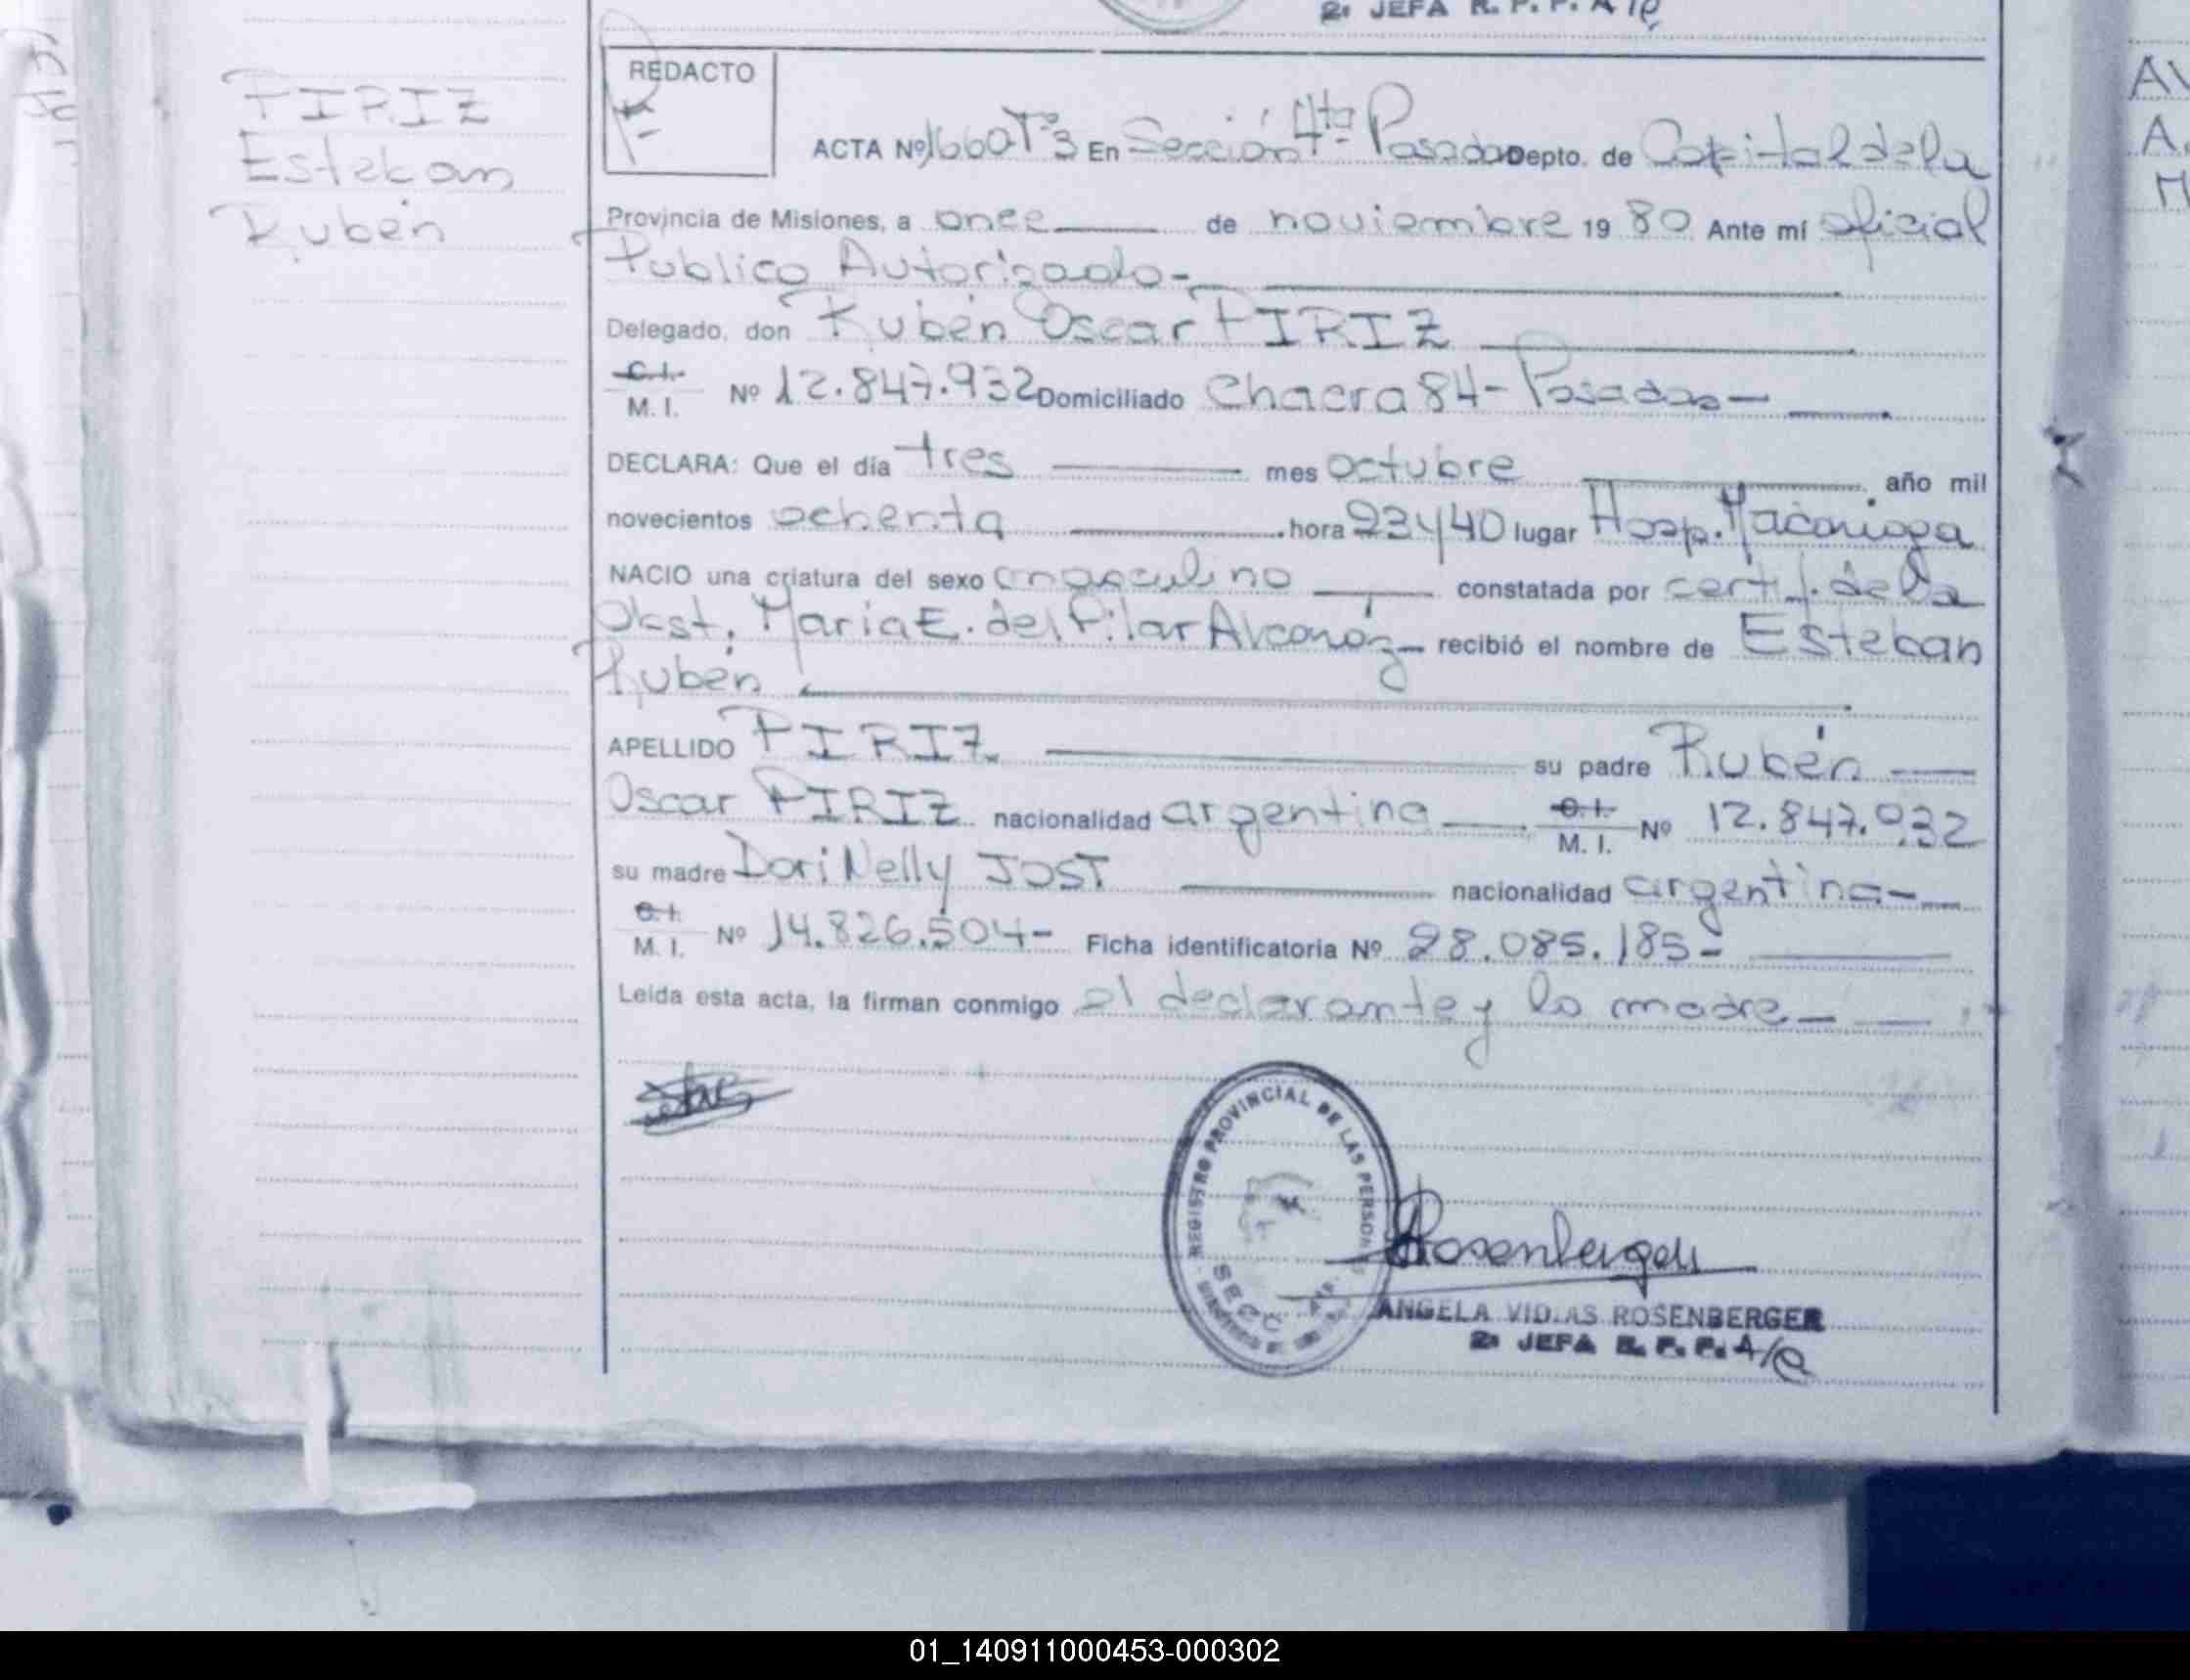 2ª JEFA R. P. P. A/C
PIRIZ
Esteban
Rubén
REDACTO
ACTA Nº 1660 Tº3 En Sección 4ta Posadas Depto. de Capital de la
Provincia de Misiones, a once de noviembre 19 80 Ante mí oficial
Publico Autorizado-
Delegado, don Rubén Oscar PIRIZ
C. I.
M. I. Nº 12.847.932 Domiciliado Chacra 84 - Posadas -
DECLARA: Que el día tres mes octubre año mil
novecientos ochenta hora 23 y 40 lugar Hosp.
NACIO una criatura del sexo masculino constatada por certif. de la
Obst. Maria E. del Pilar recibió el nombre de Esteban
Rubén
APELLIDO PIRIZ su padre Rubén
Oscar PIRIZ nacionalidad argentina C. I.
M. I. Nº 12.847.932
su madre Dori Nelly JOST nacionalidad argentina -
C. I.
M. I. Nº 14.826.504- Ficha identificatoria Nº 28.085.185-
Leída esta acta, la firman conmigo el declarante y la madre -
REGISTRO PROVINCIAL DE LAS PERSONAS
SECC.
Rosenberger
ANGELA VIDLAS ROSENBERGER
2ª JEFA R. P. P. A/C
01_140911000453-000302